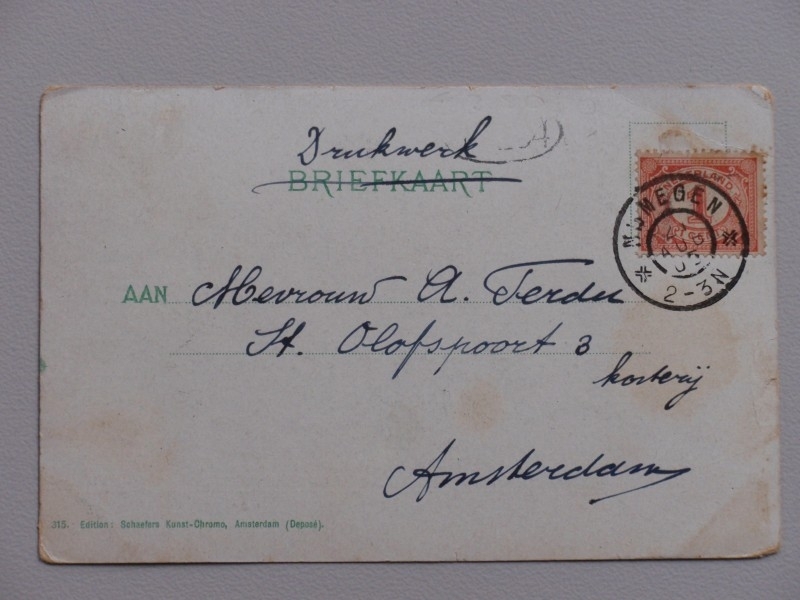 Drukwerk
BRIEFKAART
NEDERLAND
1
NIJMEGEN
2-3N
AAN Mevrouw A. Terdu
St. Olofspoort 3
kosterij
Amsterdam
315. Edition: Schaefers Kunst-Chromo, Amsterdam (Deposé).